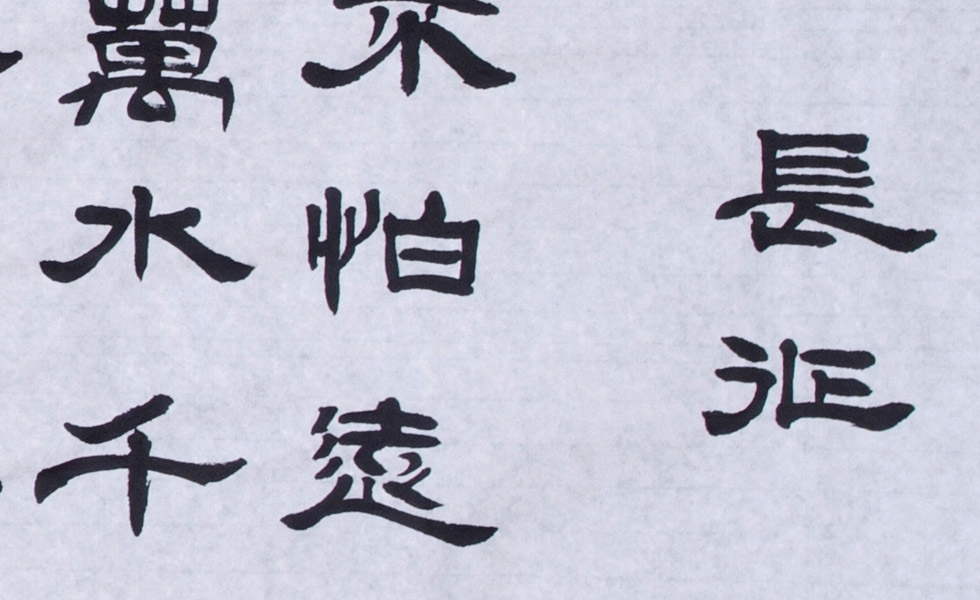 長征
不怕遠
萬水千